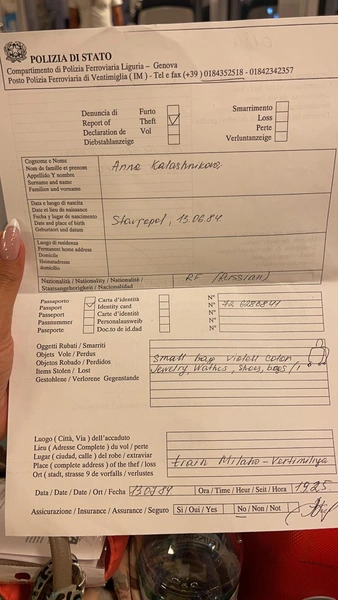 POLIZIA DI STATO
Compartimento di Polizia Ferroviaria Liguria – Genova
Posto Polizia Ferroviaria di Ventimiglia ( IM ) - Tel e fax (+39 ) 0184352518 - 01842342357
Denuncia di Furto
Report of Theft
Declaration de Vol
Diebstahlanzeige
Smarrimento
Loss
Perte
Verluntanzeige
Cognome e Nome
Nom de famille et prenom
Appellido Y nombre
Surname and name
Familien und vorname
Anna Kalashnikova
Data e luogo di nascita
Date et lieu de naissance
Fecha y lugar de nacimento
Date and place of birth
Geburtsort und datum
Stavropol, 13.06.84
Luogo di residenza
Permanent home address
Domicile
Heimatadresse
domicilio
Nazionalità / Nationality / Nationalité /
Staatsangehorigkeit / Nacionalidad
RF (Russian)
Passaporto
Passport
Passeport
Passnummer
Paseporte
Carta d'identità
Identity card
Carte d'identité
Personalausweib
Doc.to de id.dad
N°
N°
N°
N°
N°
Oggetti Rubati / Smarriti
Objets Vole / Perdus
Objetos Robado / Perdidos
Items Stolen / Lost
Gestohlene / Verlorene Gegenstande
small bag violett color,
Jewelry, Wathes, Shoes, bags
Luogo ( Città, Via ) dell'accaduto
Lieu ( Adresse Complete ) du vol / perte
Lugar ( ciudad, calle ) del robo / extraviar
Place ( complete address ) of the thef / loss
Ort ( stadt, strasse 9 de vorfalls / verlustes
train Milano - Vertimilya
Data / Date / Date / Ort / Fecha 13.07.84
Ora / Time / Heur / Seit / Hora 19.25
Assicurazione / Insurance / Assurance / Seguro
Si / Oui / Yes
No / Non / Not